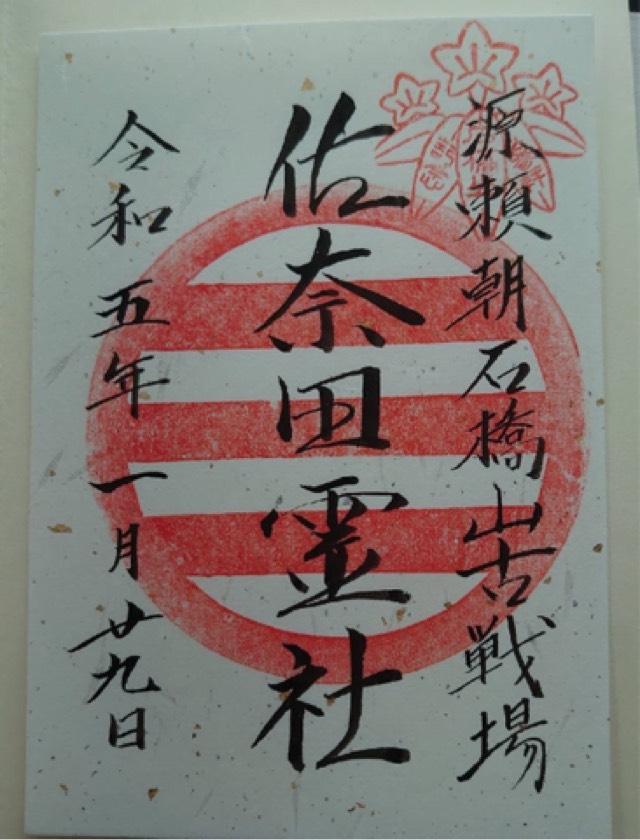 源頼朝石橋山古戦場
佐奈田霊社
令和五年一月廿九日